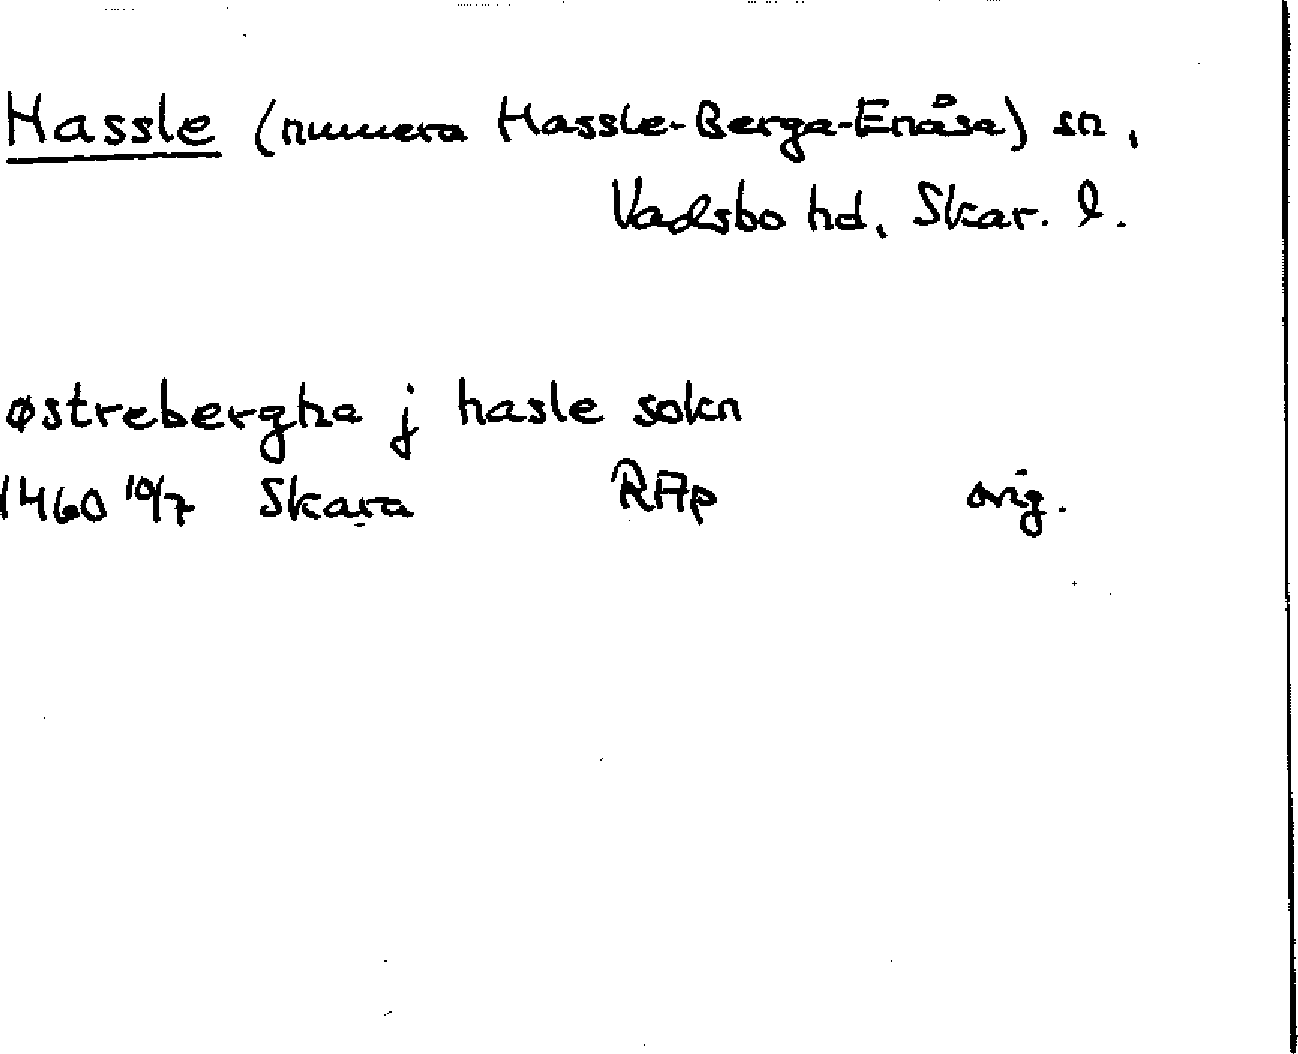 Hassle (numera Hassle-Berga-Enåsa) sn,
Vadsbo hd, Skar. l.
østrebergha j hasle sokn
1460 10/7 Skara RAp orig.